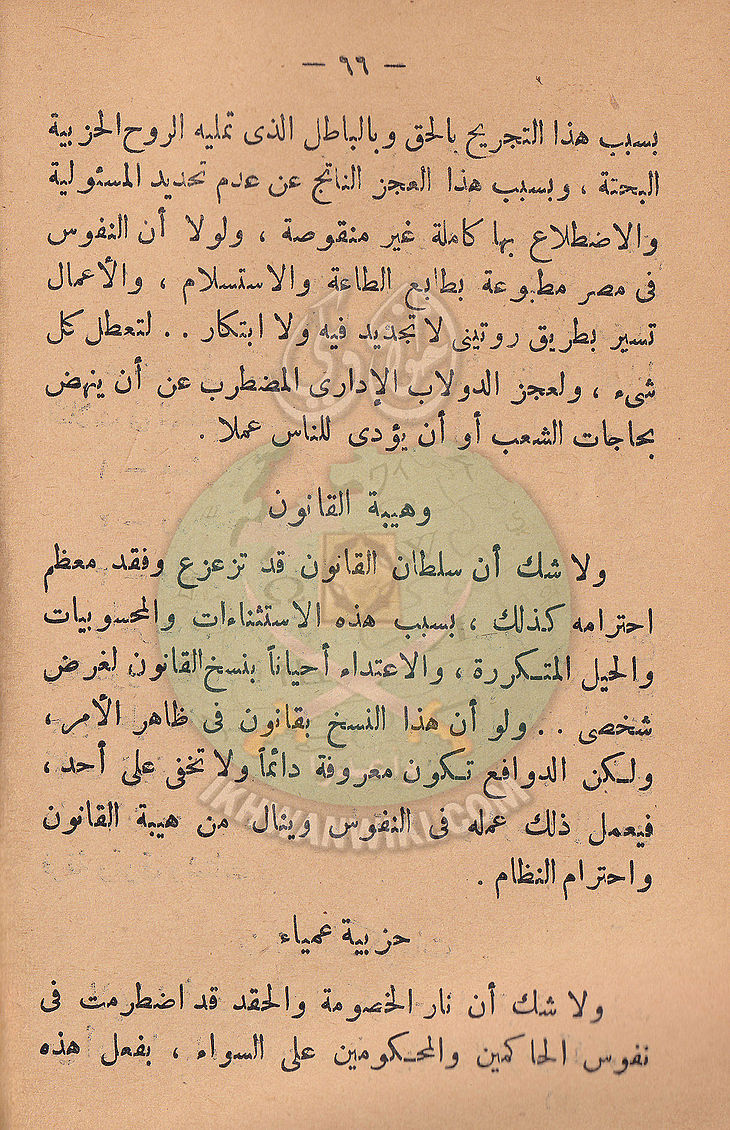 — ٩٩ —
بسبب هذا التجريح بالحق وبالباطل الذى تمليه الروح الحزبية
البحتة ، وبسبب هذا العجز الناتج عن عدم تحديد المسئولية
والاضطلاع بها كاملة غير منقوصة ، ولولا أن النفوس
فى مصر مطبوعة بطابع الطاعة والاستسلام ، والأعمال
تسير بطريق روتينى لا تجديد فيه ولا ابتكار . . لتعطل كل
شىء ، ولعجز الدولاب الإدارى المضطرب عن أن ينهض
بحاجات الشعب أو أن يؤدى للناس عملا .
وهيبة القانون
ولا شك أن سلطان القانون قد تزعزع وفقد معظم
احترامه كذلك ، بسبب هذه الاستثناءات والمحسوبيات
والحيل المتكررة ، والاعتداء أحياناً بنسخ القانون لغرض
شخصى . . ولو أن هذا النسخ بقانون فى ظاهر الأمر ،
ولكن الدوافع تكون معروفة دائماً ولا تخفى على أحد ،
فيعمل ذلك عمله فى النفوس وينال من هيبة القانون
واحترام النظام .
حزبية عمياء
ولا شك أن نار الخصومة والحقد قد اضطرمت فى
نفوس الحاكمين والمحكومين على السواء ، بفعل هذه
IKHWANWIKI.COM